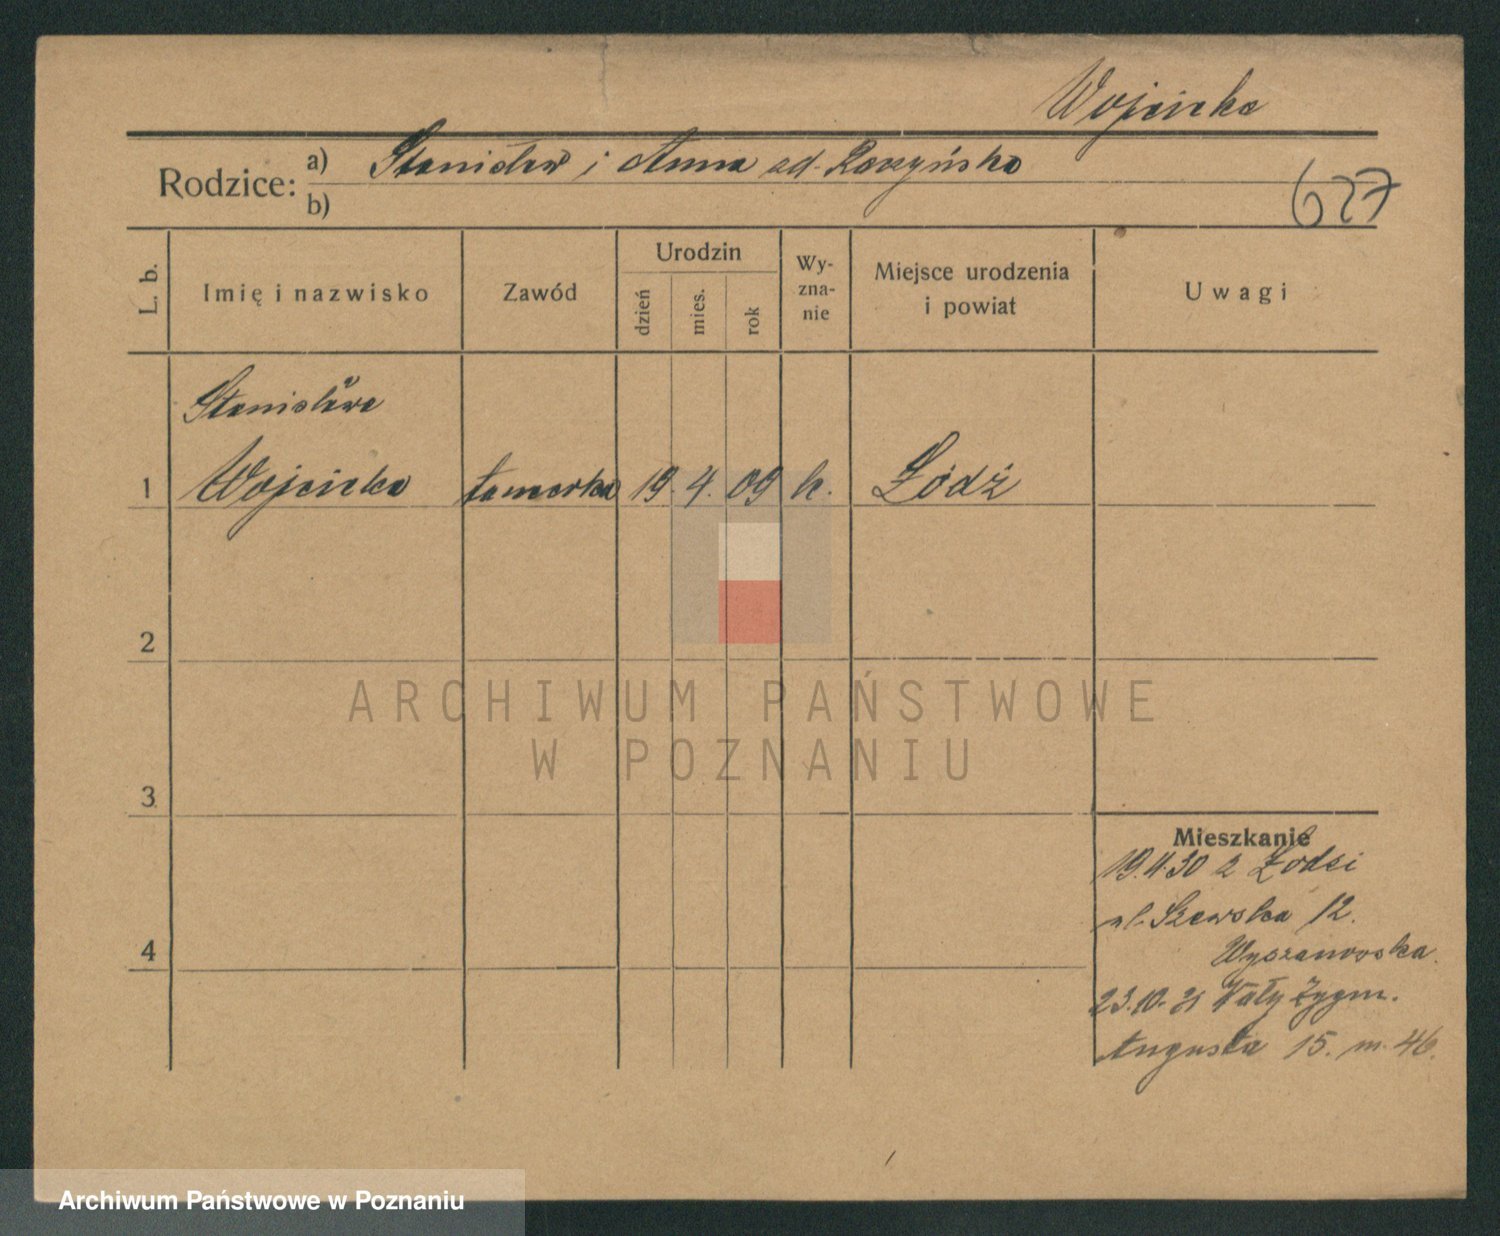 Wojcicka
Rodzice: a) Stanisław i Anna ud.
b)
627
L. b.
Imię i nazwisko
Zawód
Urodzin
dzień
mies.
rok
Wy-
zna-
nie
Miejsce urodzenia
i powiat
Uwagi
Stanisława
1 Wojcicka 19. 4. 09 k. Łódź
2
3
4
Mieszkanie
19.4.30 z Łodzi
ul. Szewska 12.
Wyszanowska.
23.10.31 Wały Zygm.
Augusta 15. m. 46.
ARCHIWUM PAŃSTWOWE
W POZNANIU
Archiwum Państwowe w Poznaniu